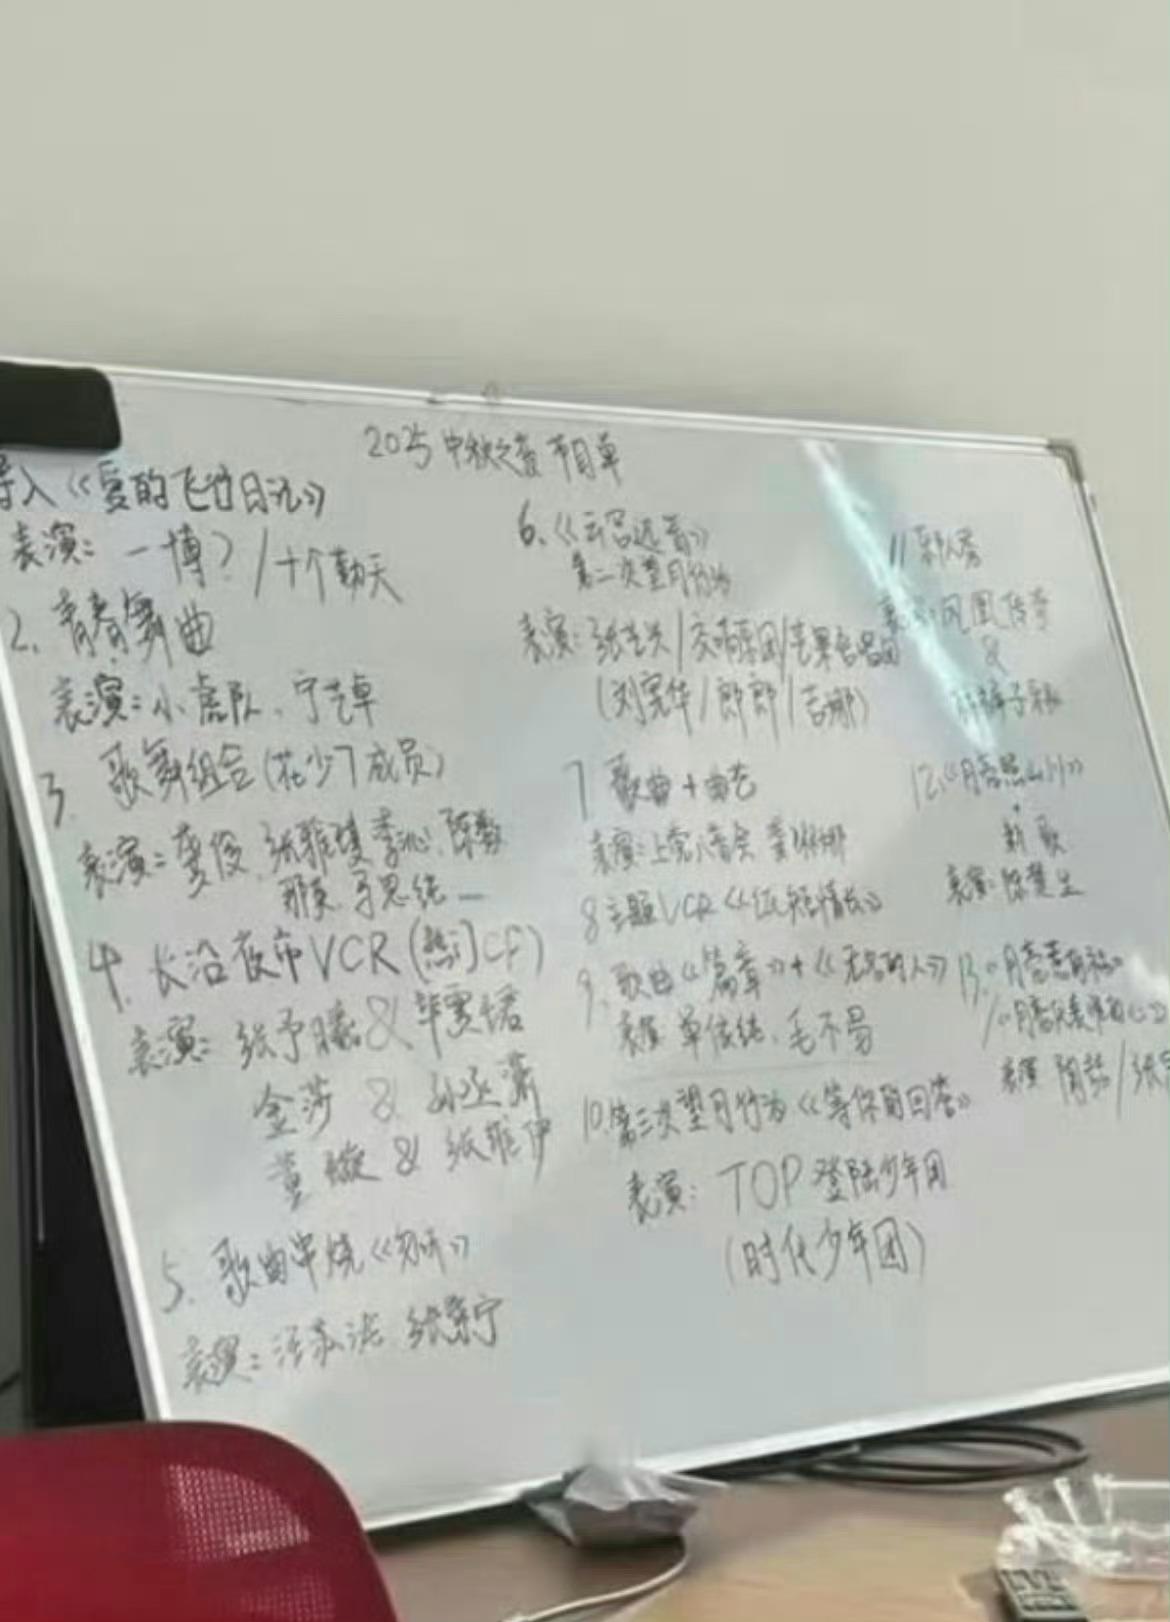 2025 中秋之夜 节目单
导入《夏的飞行日记》
表演：一博？/十个勤天
2、青春舞曲
表演：小虎队、宁艺卓
3、歌舞组合(花少7成员)
表演：龚俊、张雅琪 李沁、陈数
那英 马思纯
4、长沿夜市VCR(热门CP)
表演：张予曦&
金莎 & 孙丞潇
董璇 & 张维伊
5、歌曲串烧
表演：汪苏泷 张紫宁
6、《云宫迅音》
第二次望月行为
表演：张艺兴/交响乐团/芒果合唱团
(刘宪华/郎郎/吉娜)
7 歌曲+曲艺
表演：上党八音会 龚琳娜
8 主题VCR《纸短情长》
9、歌曲《篇章》+《无名的人》
表演 单依纯、毛不易
10.第三次望月行为《等你的回答》
表演：TOP登陆少年团
(时代少年团)
11
表演：凤凰传奇
&
12、《月亮照山川》
+
新歌
表演：陈楚生
13、
表演